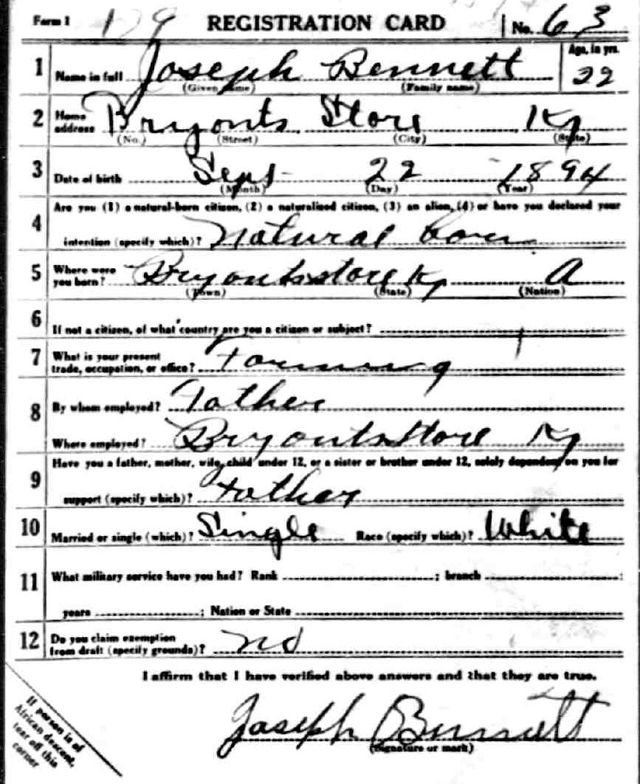 Form 1 179 REGISTRATION CARD No. 63
1 Name in full Joseph Bennett Age, in yrs. 22
(Given name) (Family name)
2 Home address Bryonts Store Ky
(No.) (Street) (City) (State)
3 Date of birth Sept 22 1894
(Month) (Day) (Year)
Are you (1) a natural-born citizen, (2) a naturalized citizen, (3) an alien, (4) or have you declared your
4 intention (specify which)? Natural born
5 Where were you born? Bryontsstore Ky A
(Town) (State) (Nation)
6 If not a citizen, of what country are you a citizen or subject?
7 What is your present trade, occupation, or office? Farming
8 By whom employed? Father
Where employed? Bryontsstore Ky
9 Have you a father, mother, wife, child under 12, or a sister or brother under 12, solely dependent on you for
support (specify which)? Father
10 Married or single (which)? Single Race (specify which)? White
11 What military service have you had? Rank ; branch ;
years ; Nation or State
12 Do you claim exemption from draft (specify grounds)? no
I affirm that I have verified above answers and that they are true.
Joseph Bennett
(Signature or mark)
If person is of
African descent,
tear off this
corner